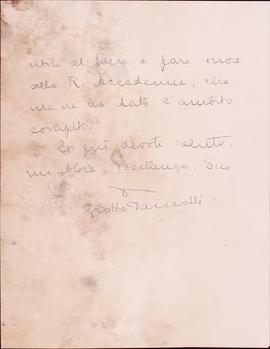 utile al Paese e fare onore
alla R. Accademia, che
me ne ha dato l'ambito
compito.
Coi più devoti saluti,
mi abbia, Eccellenza, Suo
Giotto Dainelli